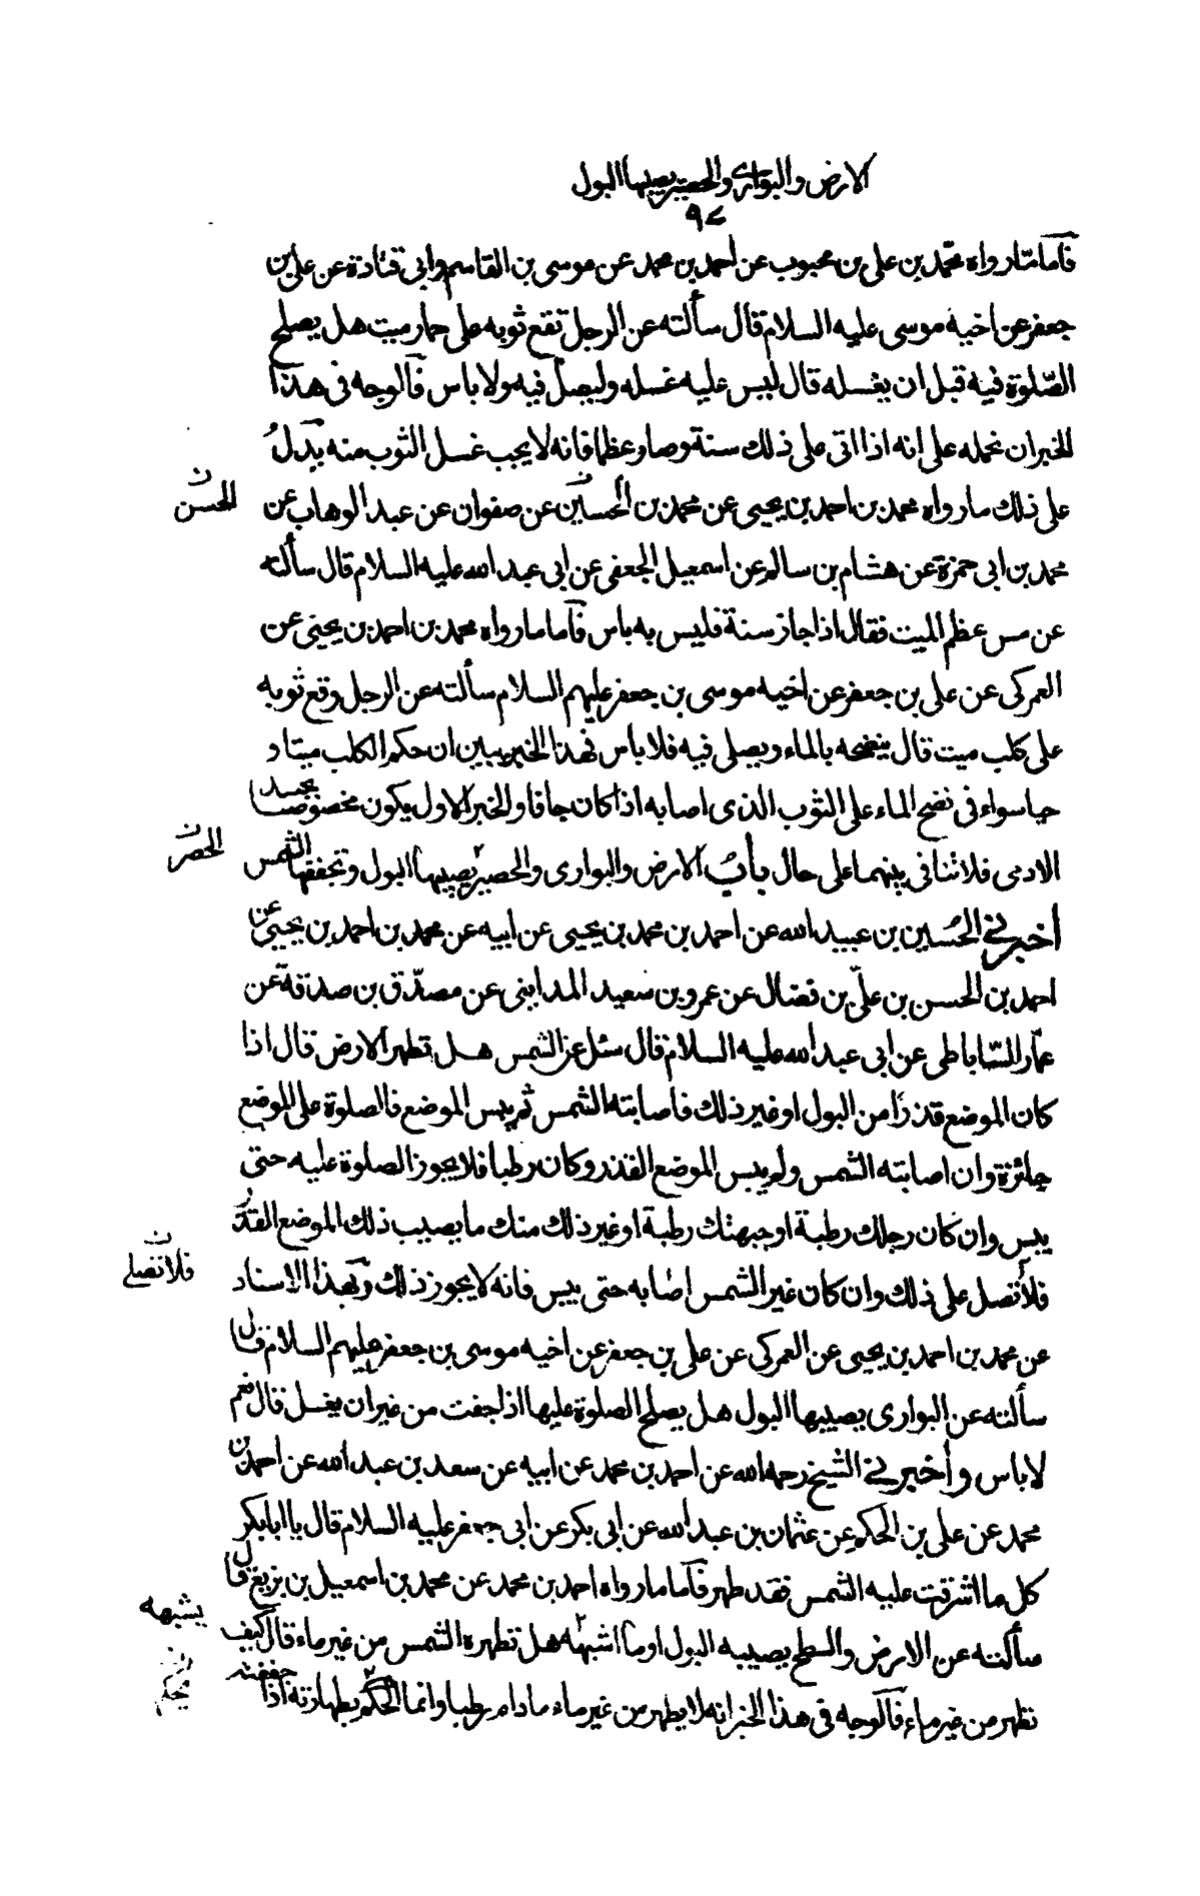 الارض والبواري والحصير يصيبها البول
٩٢
فاما ما رواه محمد بن علي بن محبوب عن احمد بن محمد عن موسى بن القاسم وابي قتادة عن علي بن
جعفر عن اخيه موسى عليه السلام قال سألته عن الرجل تقع ثوبه على حمار ميت هل يصلح
الصّلوة فيه قبل ان يغسله قال ليس عليه غسله وليصل فيه ولا باس فالوجه في هذا
الخبر ان نحمله على انه اذا اتى على ذلك سنة وصار عظما فانه لا يجب غسل الثوب منه يدل
على ذلك ما رواه محمد بن احمد بن يحيى عن محمد بن الحسين عن صفوان عن عبد الوهاب عن
الحسن ن
محمد بن ابي حمزة عن هشام بن سالم عن اسمعيل الجعفي عن ابي عبد الله عليه السلام قال سألته
عن مس عظم الميت فقال اذا جاز سنة فليس به باس فاما ما رواه محمد بن احمد بن يحيى عن
العمركي عن علي بن جعفر عن اخيه موسى بن جعفر عليهم السلام سألته عن الرجل وقع ثوبه
على كلب ميت قال ينضحه بالماء ويصلي فيه فلا باس فهذا الخبر يبين ان حكم الكلب ميتا و
حيا سواء في نضح الماء على الثوب الذي اصابه اذا كان جافا والخبر الاول يكون مخصوصا بجسد
الادمي فلا تنافي بينهما على حال باب الارض والبواري والحصير يصيبها البول وتجففها الشمس
الحصر ن
أخبرني الحُسين بن عبيد الله عن احمد بن محمد بن يحيى عن ابيه عن محمد بن احمد بن يحيى عن
احمد بن الحسن بن عليّ بن فضال عن عمرو بن سعيد المدايني عن مصدّق بن صدقة عن
عمّار السّاباطي عن ابي عبد الله عليه السلام قال سئل عن الشمس هل تطهر الارض قال اذا
كان الموضع قذرًا من البول او غير ذلك فاصابته الشمس ثم يبس الموضع فالصلوة على الموضع
جائزة وان اصابته الشمس ولم ييبس الموضع القذر وكان رطبا فلا يجوز الصلوة عليه حتى
ييبس وان كان رجلك رطبة او جبهتك رطبة او غير ذلك منك ما يصيب ذلك الموضع القذر
فلا تصل على ذلك وان كان غير الشمس اصابه حتى ييبس فانه لا يجوز ذلك وبهذا الاسناد
فلا تصلي ن
عن محمد بن احمد بن يحيى عن العمركي عن علي بن جعفر عن اخيه موسى بن جعفر عليهم السلام قال
سألته عن البواري يصيبها البول هل يصلح الصلوة عليها اذا جفت من غير ان يغسل قال نعم
لا باس وأخبرني الشيخ رحمه الله عن احمد بن محمد عن ابيه عن سعد بن عبد الله عن احمد بن
محمد عن علي بن الحكم عن عثمان بن عبد الله عن ابي بكر عن ابي جعفر عليه السلام قال يا ابا بكر
كل ما اشرقت عليه الشمس فقد طهر فاما ما رواه احمد بن محمد عن محمد بن اسمعيل بن بزيع قال
سألته عن الارض والسطح يصيبه البول او ما اشبهه هل تطهره الشمس من غير ماء قال كيف
يشبهه
تطهر من غير ماء فالوجه في هذا الخبر انه لا يطهر من غير ماء ما دام رطبا وانما الحكم بطهارته اذا جففته
يحكم